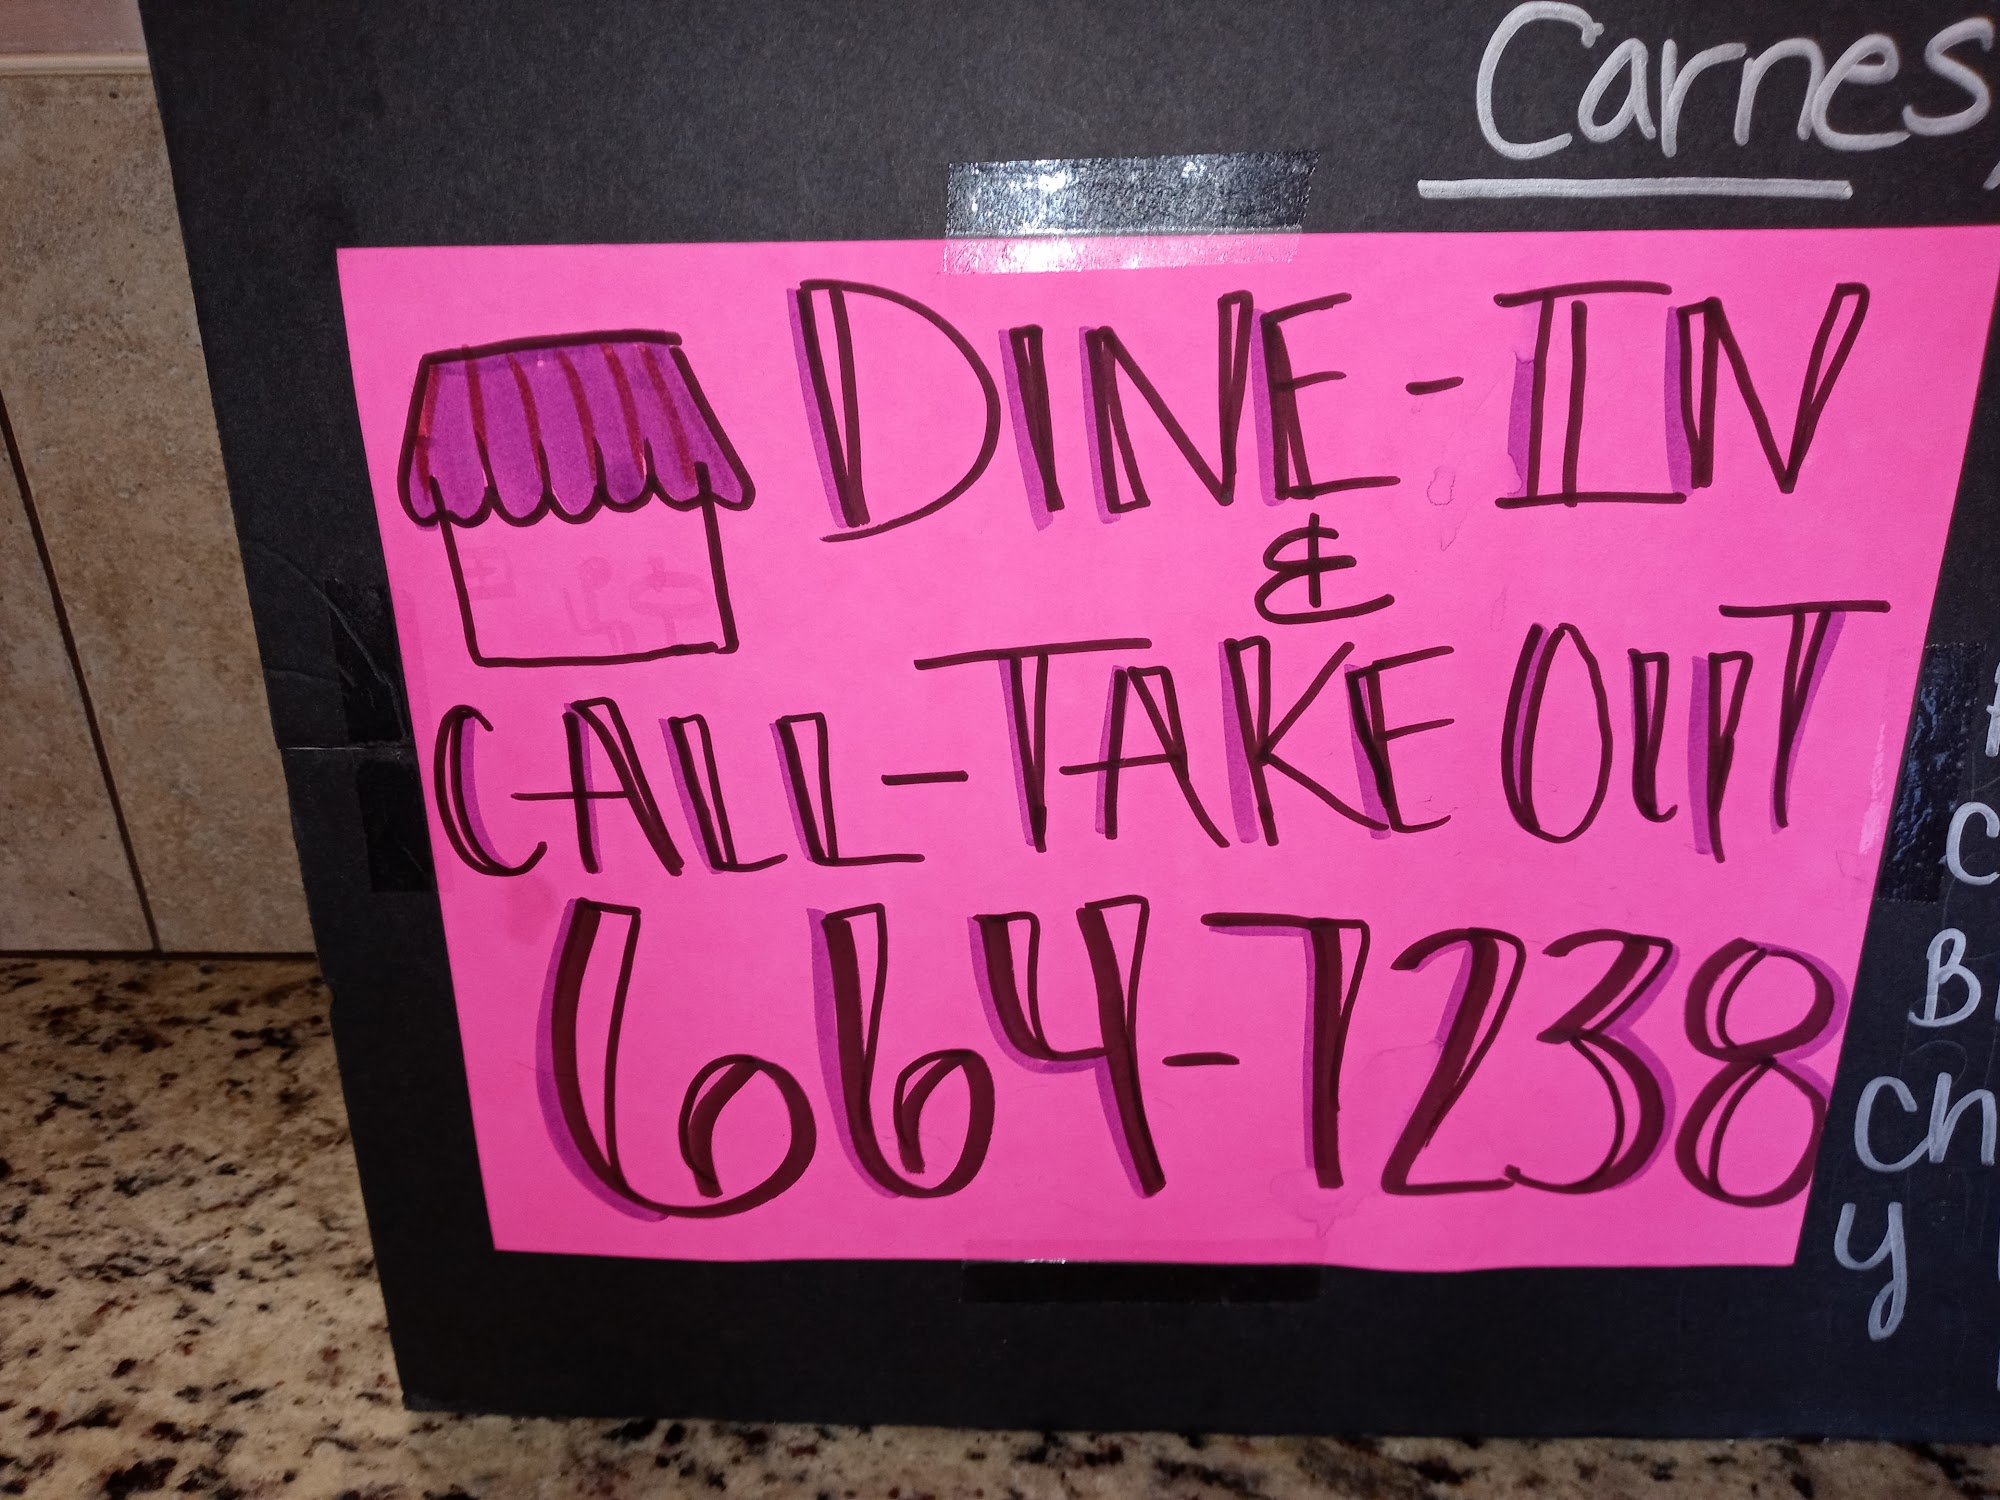 Carnes,
DINE-IN
&
CALL-TAKE OUT
664-7238
y